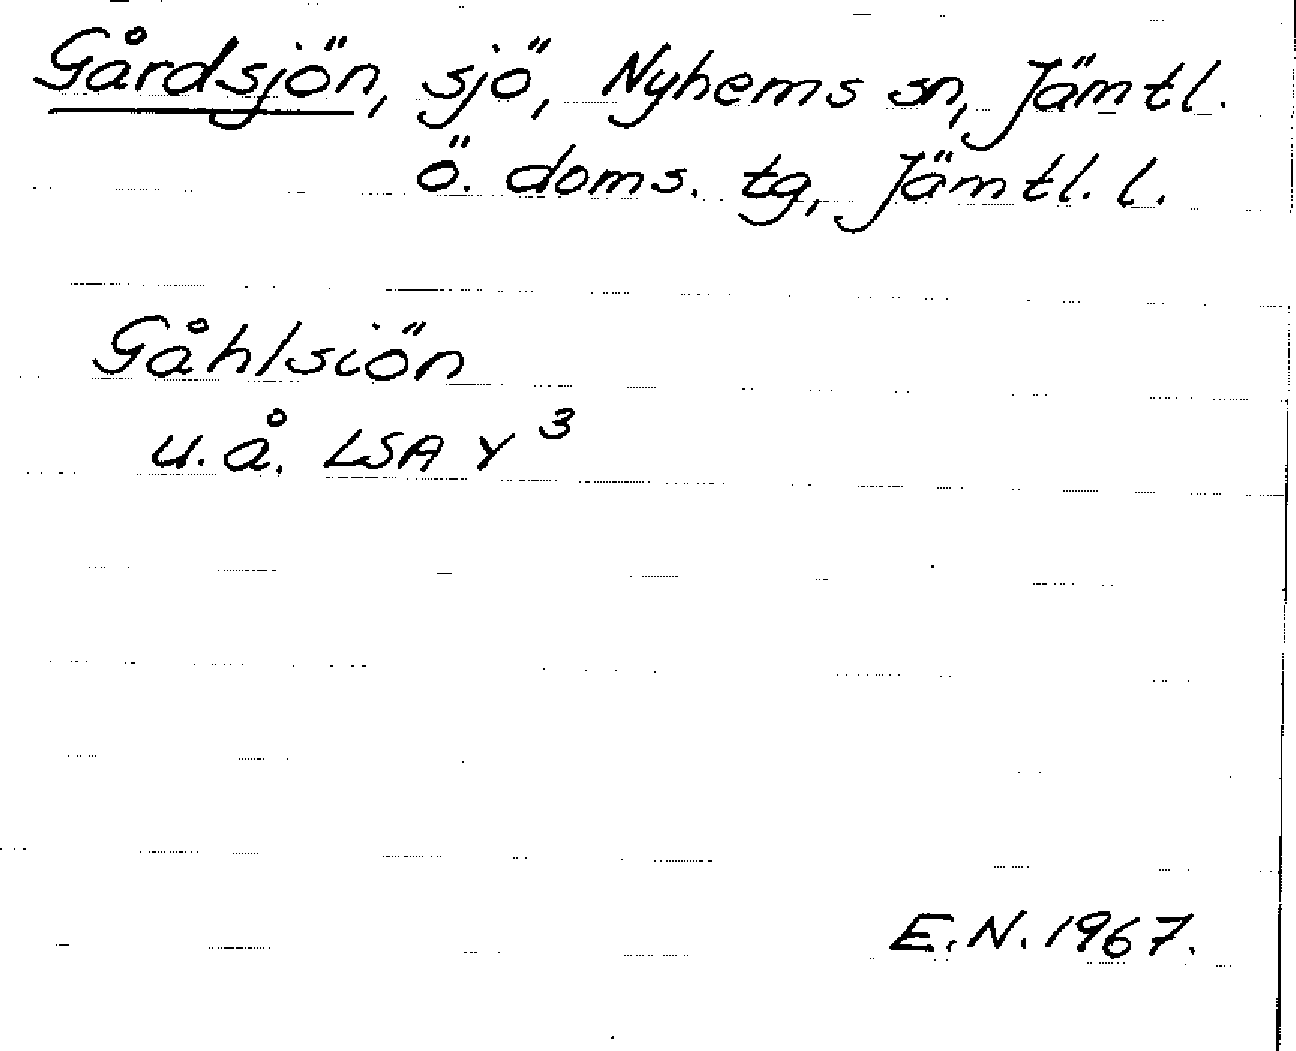 Gårdsjön, sjö, Nyhems sn, Jämtl.
Ö. doms. tg, Jämtl. l.
Gåhlsiön
u.å. LSA Y 3
E.N. 1967.